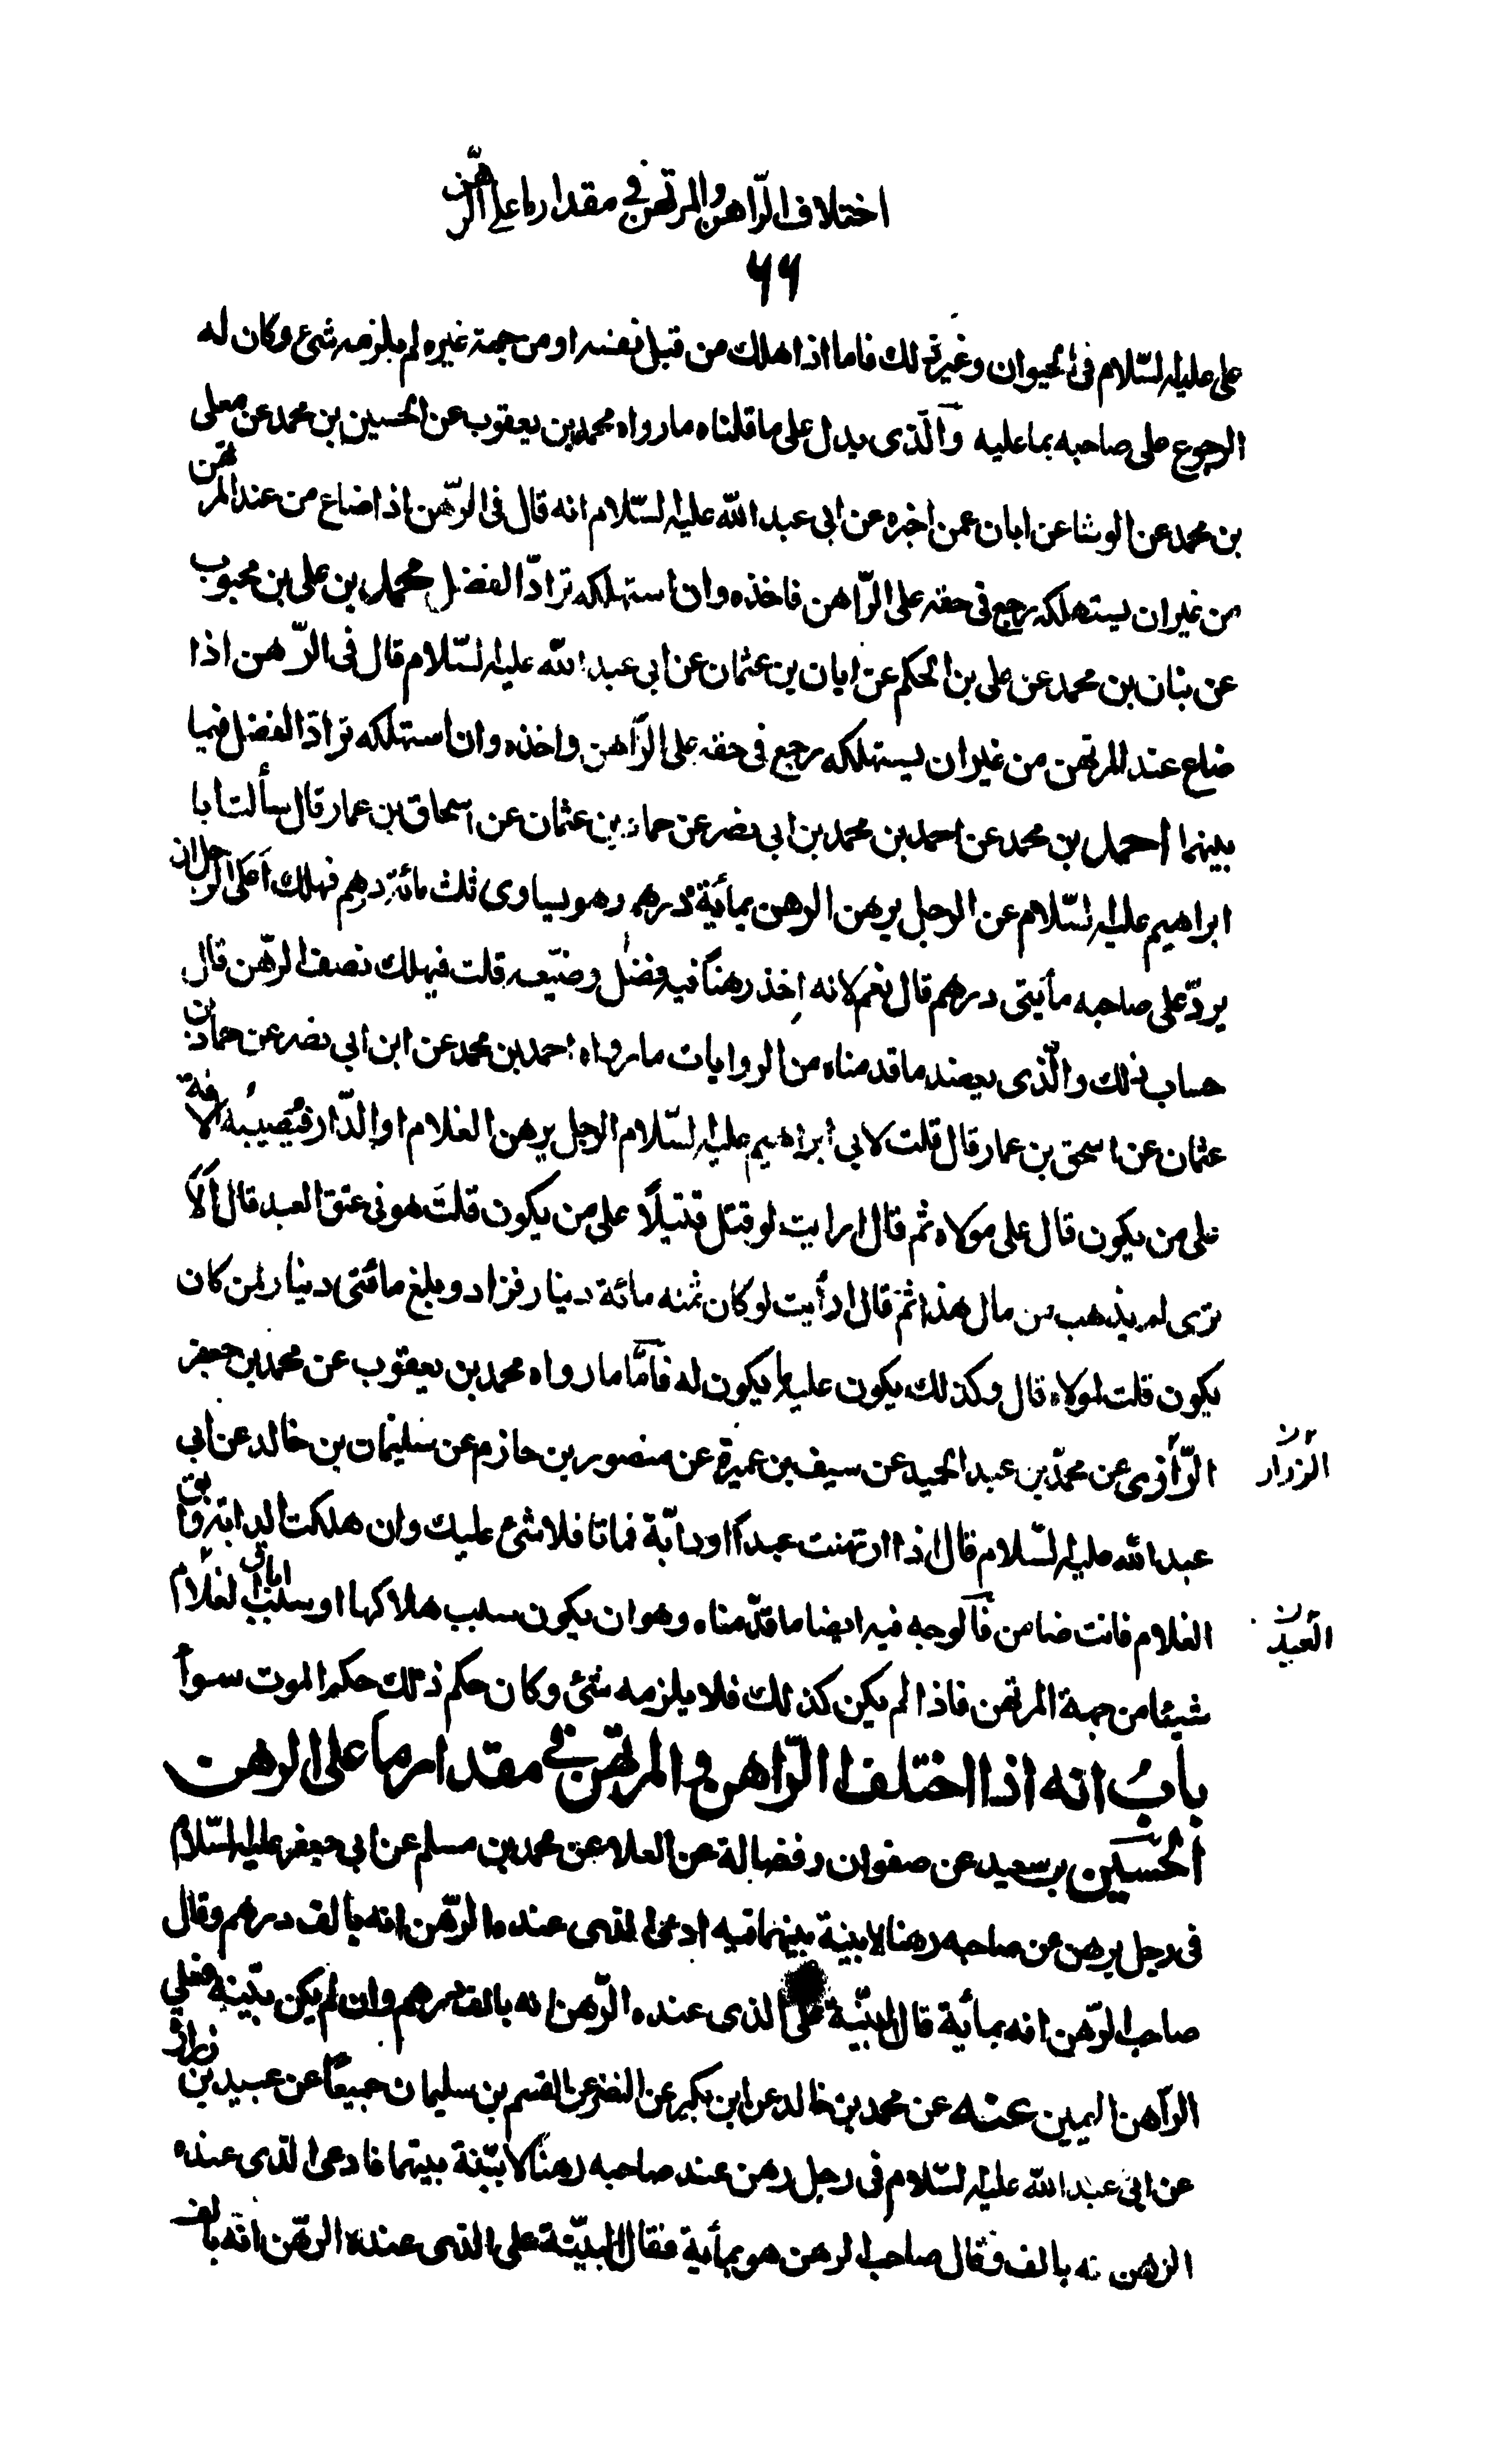 اختلاف الرّاهن والمرتهن في مقدار ما على الرّهن
٦٦
على عليه السّلام في الحيوان وغير ذلك فاما اذا هلك من قبل نفسه او من جهة غيره لم يلزمه شئ وكان له
الرجوع على صاحبه بما عليه والّذى يدل على ما قلناه ما رواه محمد بن يعقوب عن الحسين بن محمد عن معلى
بن محمد عن الوشا عن ابان عمن اخبره عن ابى عبد الله عليه السّلام انه قال فى الرّهن اذا ضاع من عند المرتهن
من غير ان يستهلكه رجع فى حقه على الرّاهن فاخذه وان استهلكه ترادّا الفضل محمد بن على بن محبوب
عن بنان بن محمد عن على بن الحكم عن ابان بن عثمان عن ابى عبد الله عليه السّلام قال فى الرّهن اذا
ضاع عند المرتهن من غير ان يستهلكه رجع فى حقه على الرّاهن واخذه وان استهلكه ترادّا الفضل فيما
بينهما احمد بن محمد عن احمد بن محمد بن ابى نصر عن حماد بن عثمان عن اسحاق بن عمار قال سألت ابا
ابراهيم عليه السّلام عن الرجل يرهن الرهن بمائة درهم وهو يساوى ثلث مائة درهم فهلك أعلى الرجل ان
يردّ على صاحبه مأيتى درهم قال نعم لانه اخذ رهنًا فيه فضل وضيّعه قلت فيهلك نصف الرّهن قال
حساب ذلك والّذى يعضد ما قدمناه من الروايات ما رواه احمد بن محمد عن ابن ابى نصر عن حماد بن
عثمان عن اسحق بن عمار قال قلت لابى ابراهيم عليه السّلام الرجل يرهن الغلام او الدّار فيصيبه الآفة
على من يكون قال على مولاه ثم قال ارايت لو قتل قتيلًا على من يكون قلت هو فى عتق العبد قال ألا
ترى لم يذهب من مال هذا ثم قال ارأيت لو كان ثمنه مائة دينار فزاد وبلغ مائتى دينار لمن كان
يكون قلت لمولاه قال وكذلك يكون عليه ما يكون له فأمّا ما رواه محمد بن يعقوب عن محمد بن جعفر
الرّازى عن محمّد بن عبد الحميد عن سيف بن عميرة عن منصور بن حازم عن سليمان بن خالد عن أبى
الزرار ن
عبد الله عليه السّلام قال اذا ارتهنت عبدًا او دابّة فماتا فلا شئ عليك وان هلكت الدابة او ابق
الغلام فانت ضامن فالوجه فيه ايضا ما قدّمناه وهو ان يكون سبب هلاكها او سبب اباق الغلام
العبد ن
شيئا من جهة المرتهن فاذا لم يكن كذلك فلا يلزمه شئ وكان حكم ذلك حكم الموت سواء
باب انه اذا اختلف الرّاهن والمرتهن في مقدار ما على الرهن
الحسين بن سعيد عن صفوان وفضالة عن العلا عن محمد بن مسلم عن ابى جعفر عليه السّلام
فى رجل يرهن عن صاحبه رهنا لا بينة بينهما فيه ادعى الذى عنده الرّهن انه بالف درهم وقال
صاحب الرّهن انه بمأية قال البيّنة على الذى عنده الرّهن انه بالف درهم وان لم يكن بيّنة فعلى
الرّاهن اليمين عنه عن محمد بن خالد عن ابن بكير عن النضر عن القسم بن سليمان جميعًا عن عبيد بن زرارة
عن ابى عبد الله عليه السّلام فى رجل رهن عند صاحبه رهنًا لا بيّنة بينهما فادعى الذى عنده
الرهن انه بالف وقال صاحب الرهن هو بمأية فقال البيّنة على الذى عنده الرهن انه بالف